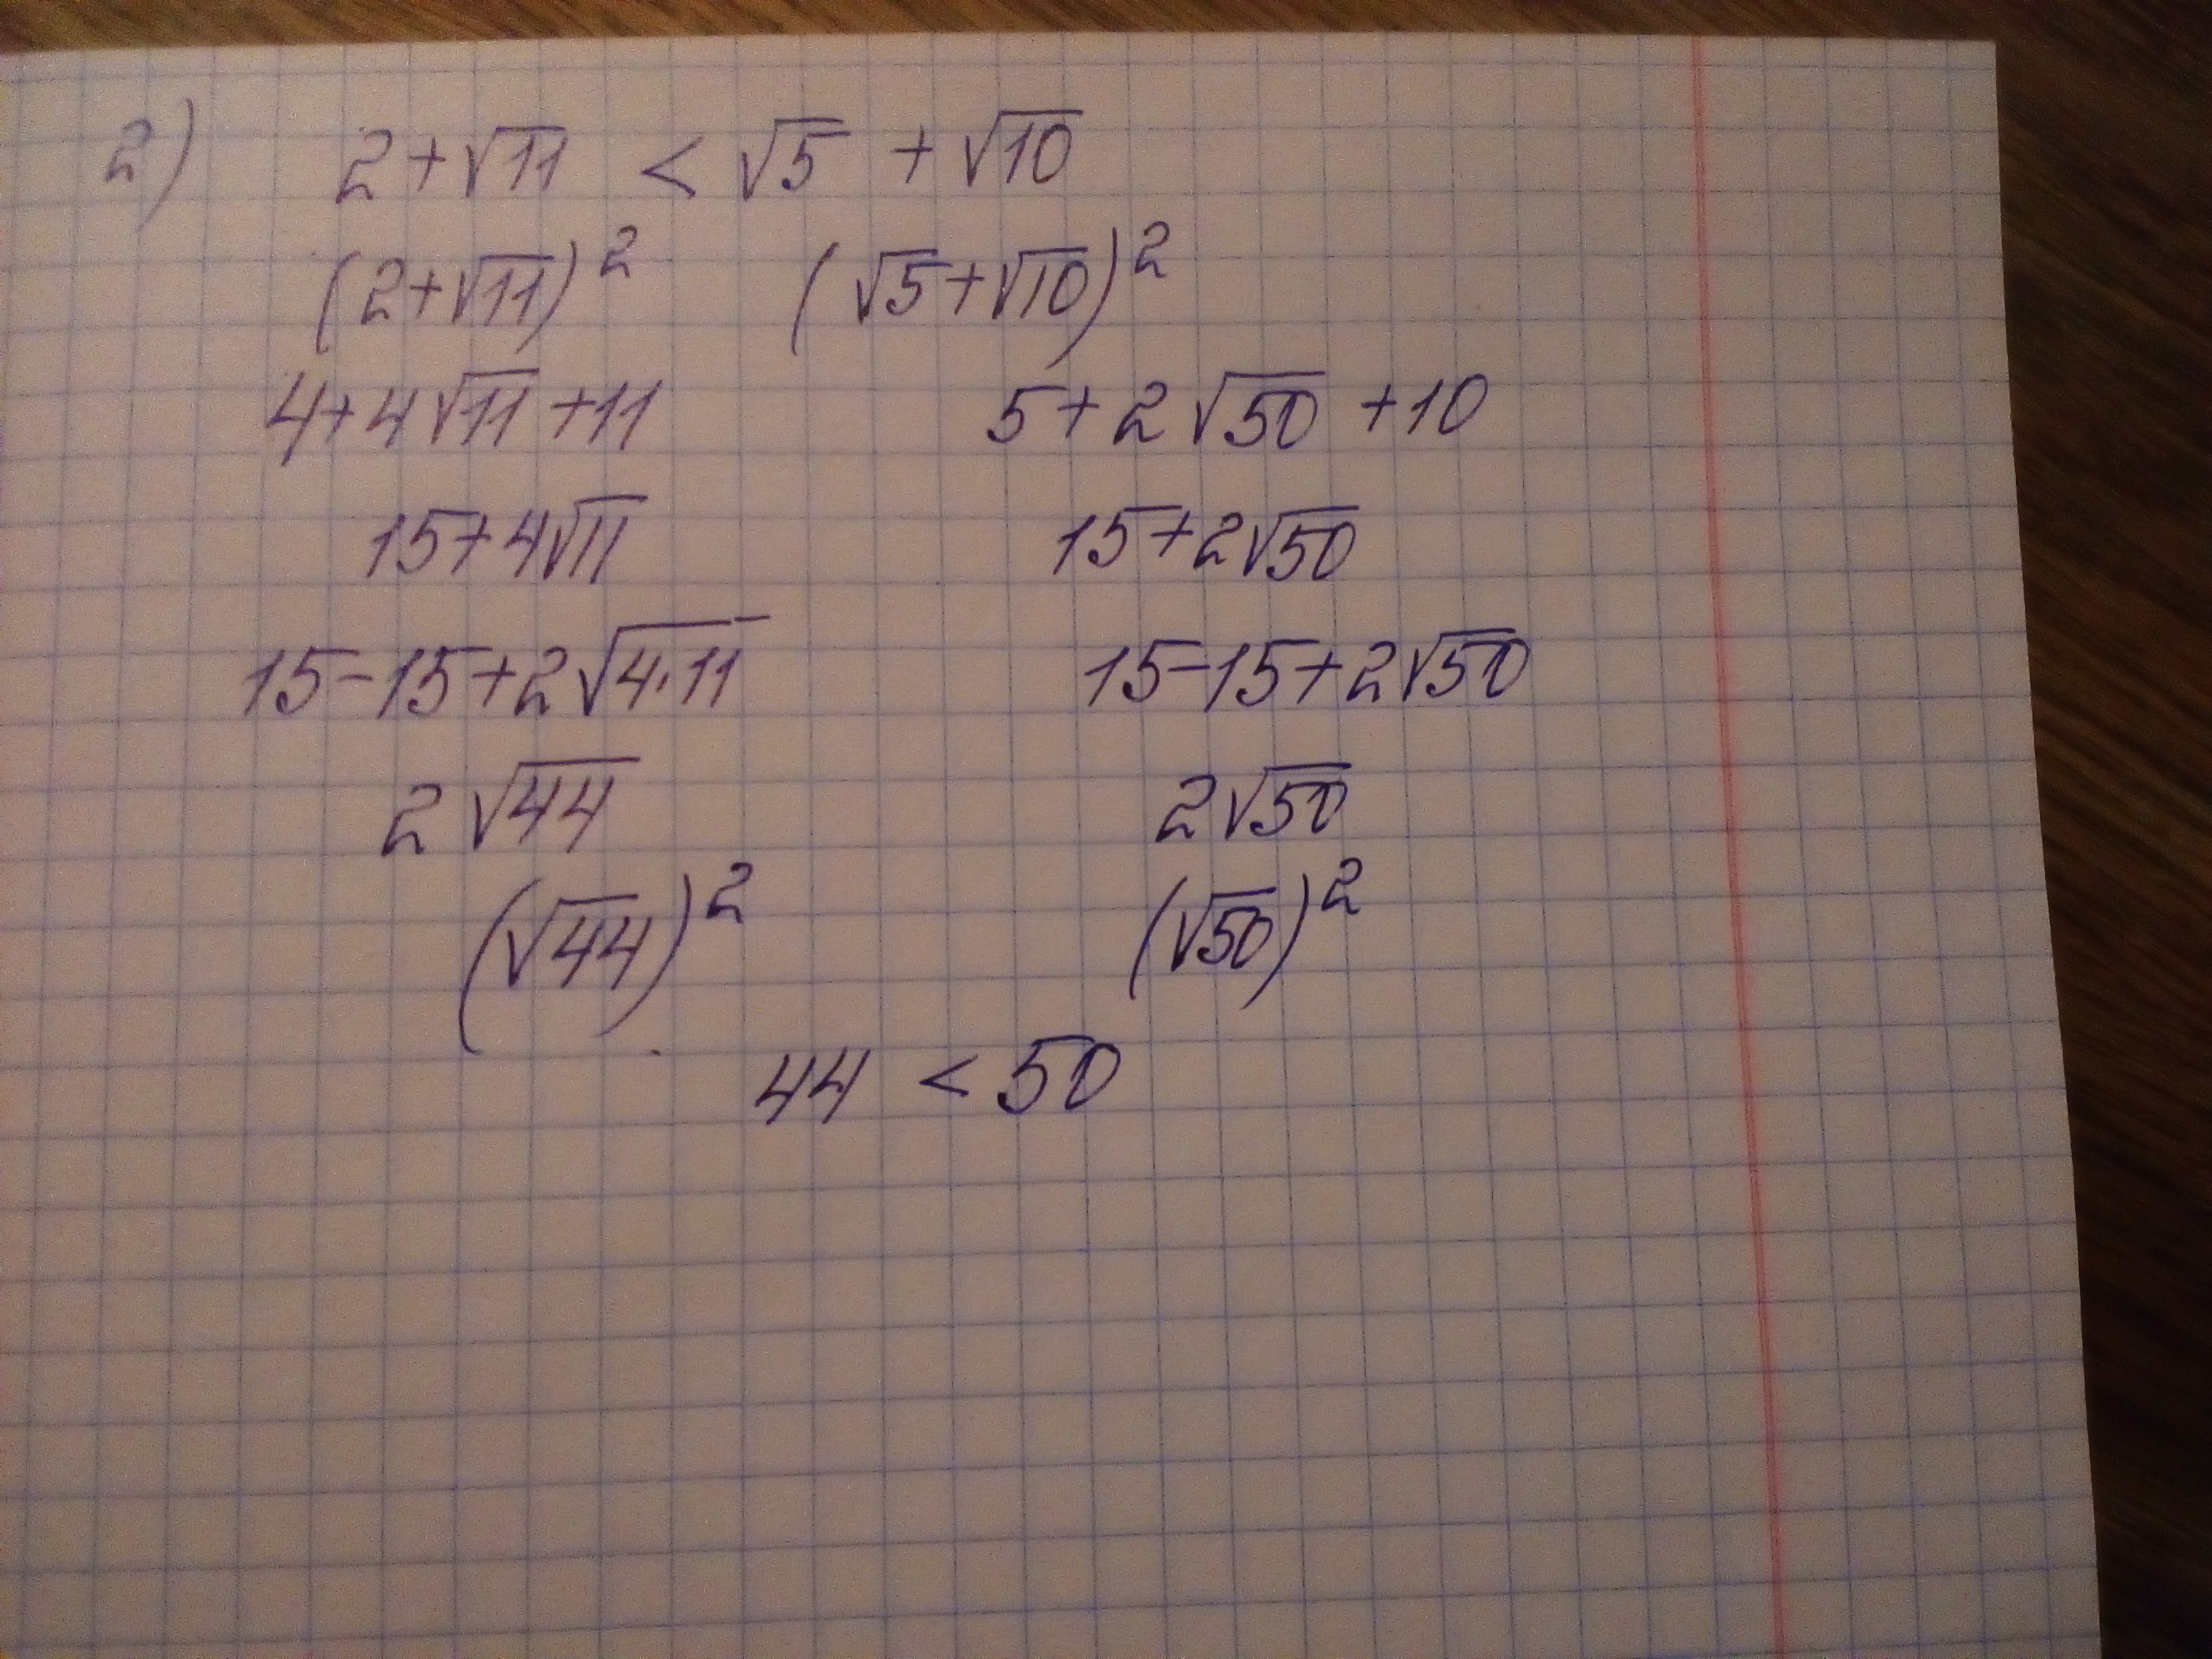 2) 2+√11 < √5 + √10
(2+√11)² (√5+√10)²
4+4√11+11 5+2√50+10
15+4√11 15+2√50
15-15+2√4·11 15-15+2√50
2√44 2√50
(√44)² (√50)²
44 < 50